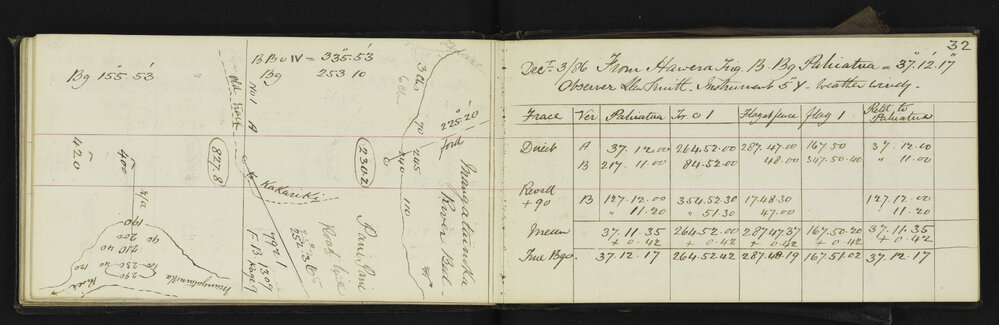 Bg 155.53
B B o IV = 335.53
Bg 253 10
No 1 A
827.8
230.2
225.20
ford
Mangatainoka
River Bed
Kakariki
Road line
792.1
F B 1309
Page 9
420
400
190
200
210 40
230 40
290
Mangatainoka
River
90
245
240
110
32
Dect 3/86 From Hawera Trig B. Bg Pahiatua = 37°.12'.17"
Observer Llew Smith. Instrument 5" Y. Weather windy.
Face Ver Pahiatua Tr. O 1 Flag at fence flag 1. Retd to Pahiatua
Direct A 37. 12.00 264.52.00 287.47.00 167.50 37. 12.00
B 217. 11.00 84.52.00 48.00 347.50.40 " 11.00
Revsd
+ 90 B 127.12.00 354.52.30 17.48.30 127.12.00
" 11.20 " 51.30 47.00 11.20
Mean 37.11.35 264.52.00 287.47.37 167.50.20 37.11.35
+ 0.42 + 0.42 + 0.42 + 0.42 + 0.42
True Bgs. 37.12.17 264.52.42 287.48.19 167.51.02 37.12.17